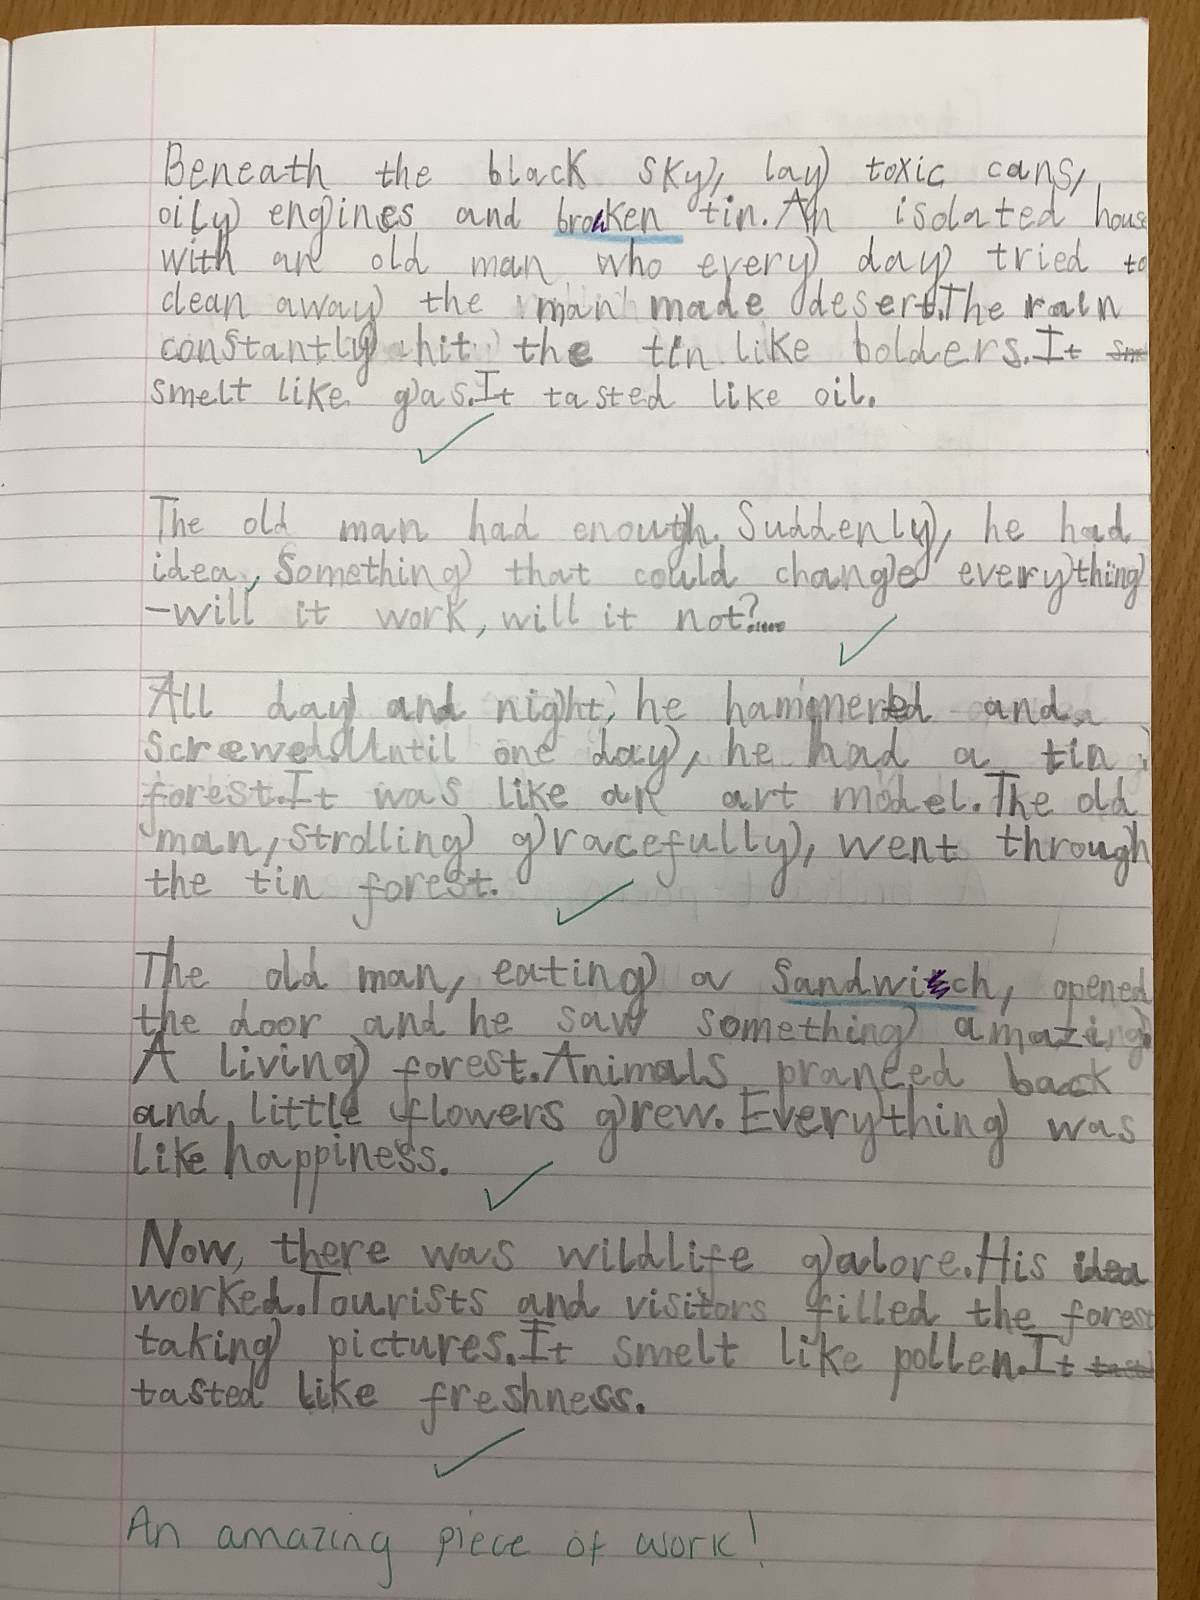 Beneath the black sky, lay toxic cans,
oily engines and broken tin. An isolated house
with an old man who every day tried to
clean away the man made desert. The rain
constantly hit the tin like bolders. It
smelt like gas. It tasted like oil.
The old man had enough. Suddenly, he had
idea, Something that could change everything
-will it work, will it not?.....
All day and night, he hammered and
screwed. Until one day, he had a tin
forest. It was like an art model. The old
man, strolling gracefully, went through
the tin forest.
The old man, eating a Sandwich, opened
the door and he saw something amazing.
A living forest. Animals pranced back
and little flowers grew. Everything was
like happiness.
Now, there was wildlife galore. His idea
worked. Tourists and visitors filled the forest
taking pictures. It smelt like pollen. It
tasted like freshness.
An amazing piece of work!